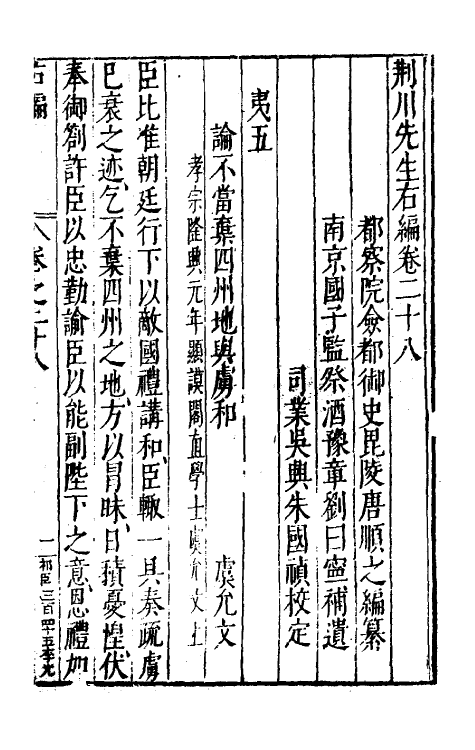 荆川先生右編卷二十八
都察院僉都御史毘陵唐順之編纂
南京國子監祭酒豫章劉曰寧補遺
司業吳興朱國禎校定
夷五
論不當棄四州地與虜和 虞允文
孝宗隆興元年顯謨閣直學士虞允文上
臣比准朝廷行下以敵國禮講和臣輙一具奏疏虜
已衰之迹乞不棄四州之地方以冒昧日積憂惶伏
奉御劄許臣以忠勤諭臣以能副陛下之意恩禮如
右編
卷之二十八
一